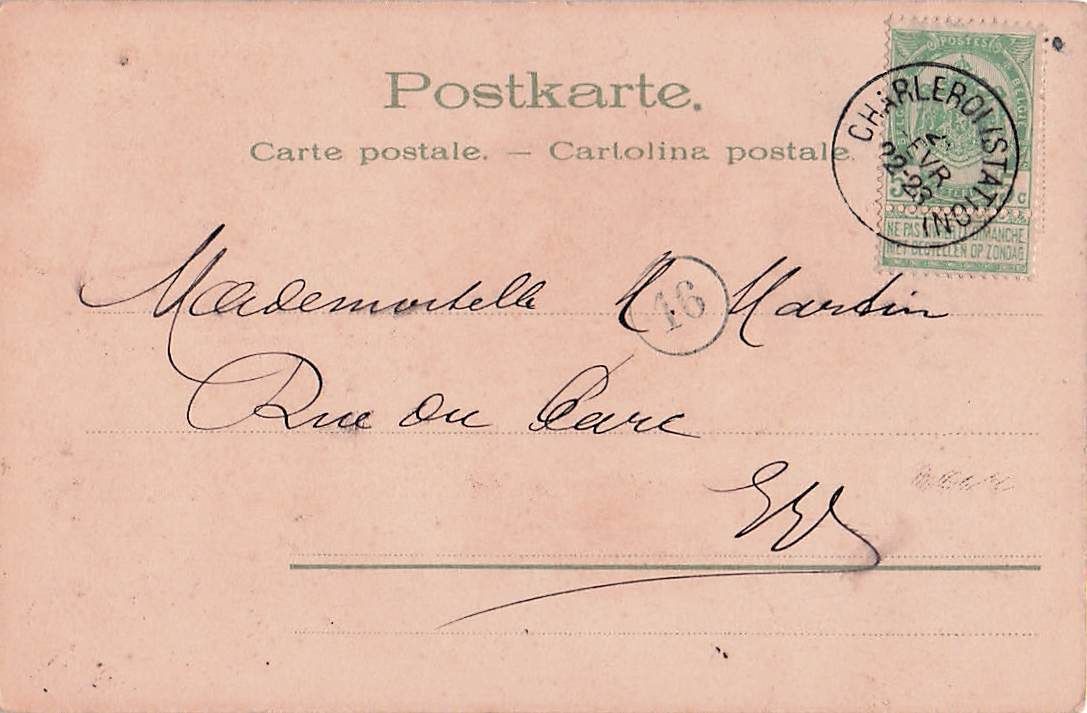 Postkarte.
Carte postale. — Cartolina postale.
POSTES
BELGIQUE
5 C
NE PAS LIVRER LE DIMANCHE
NIET BESTELLEN OP ZONDAG
CHARLEROI (STATION)
FEVR
22-23
16
Mademoiselle M. Martin
Rue du Parc
E/V